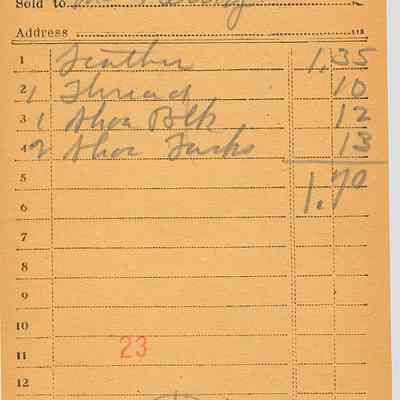 Sold to
Address
1 Leather 1.35
2 1 Thread 10
3 1 Shoe Blk 12
4 2 Shoe Tacks 13
5 1.70
6
7
8
9
10
11 23
12